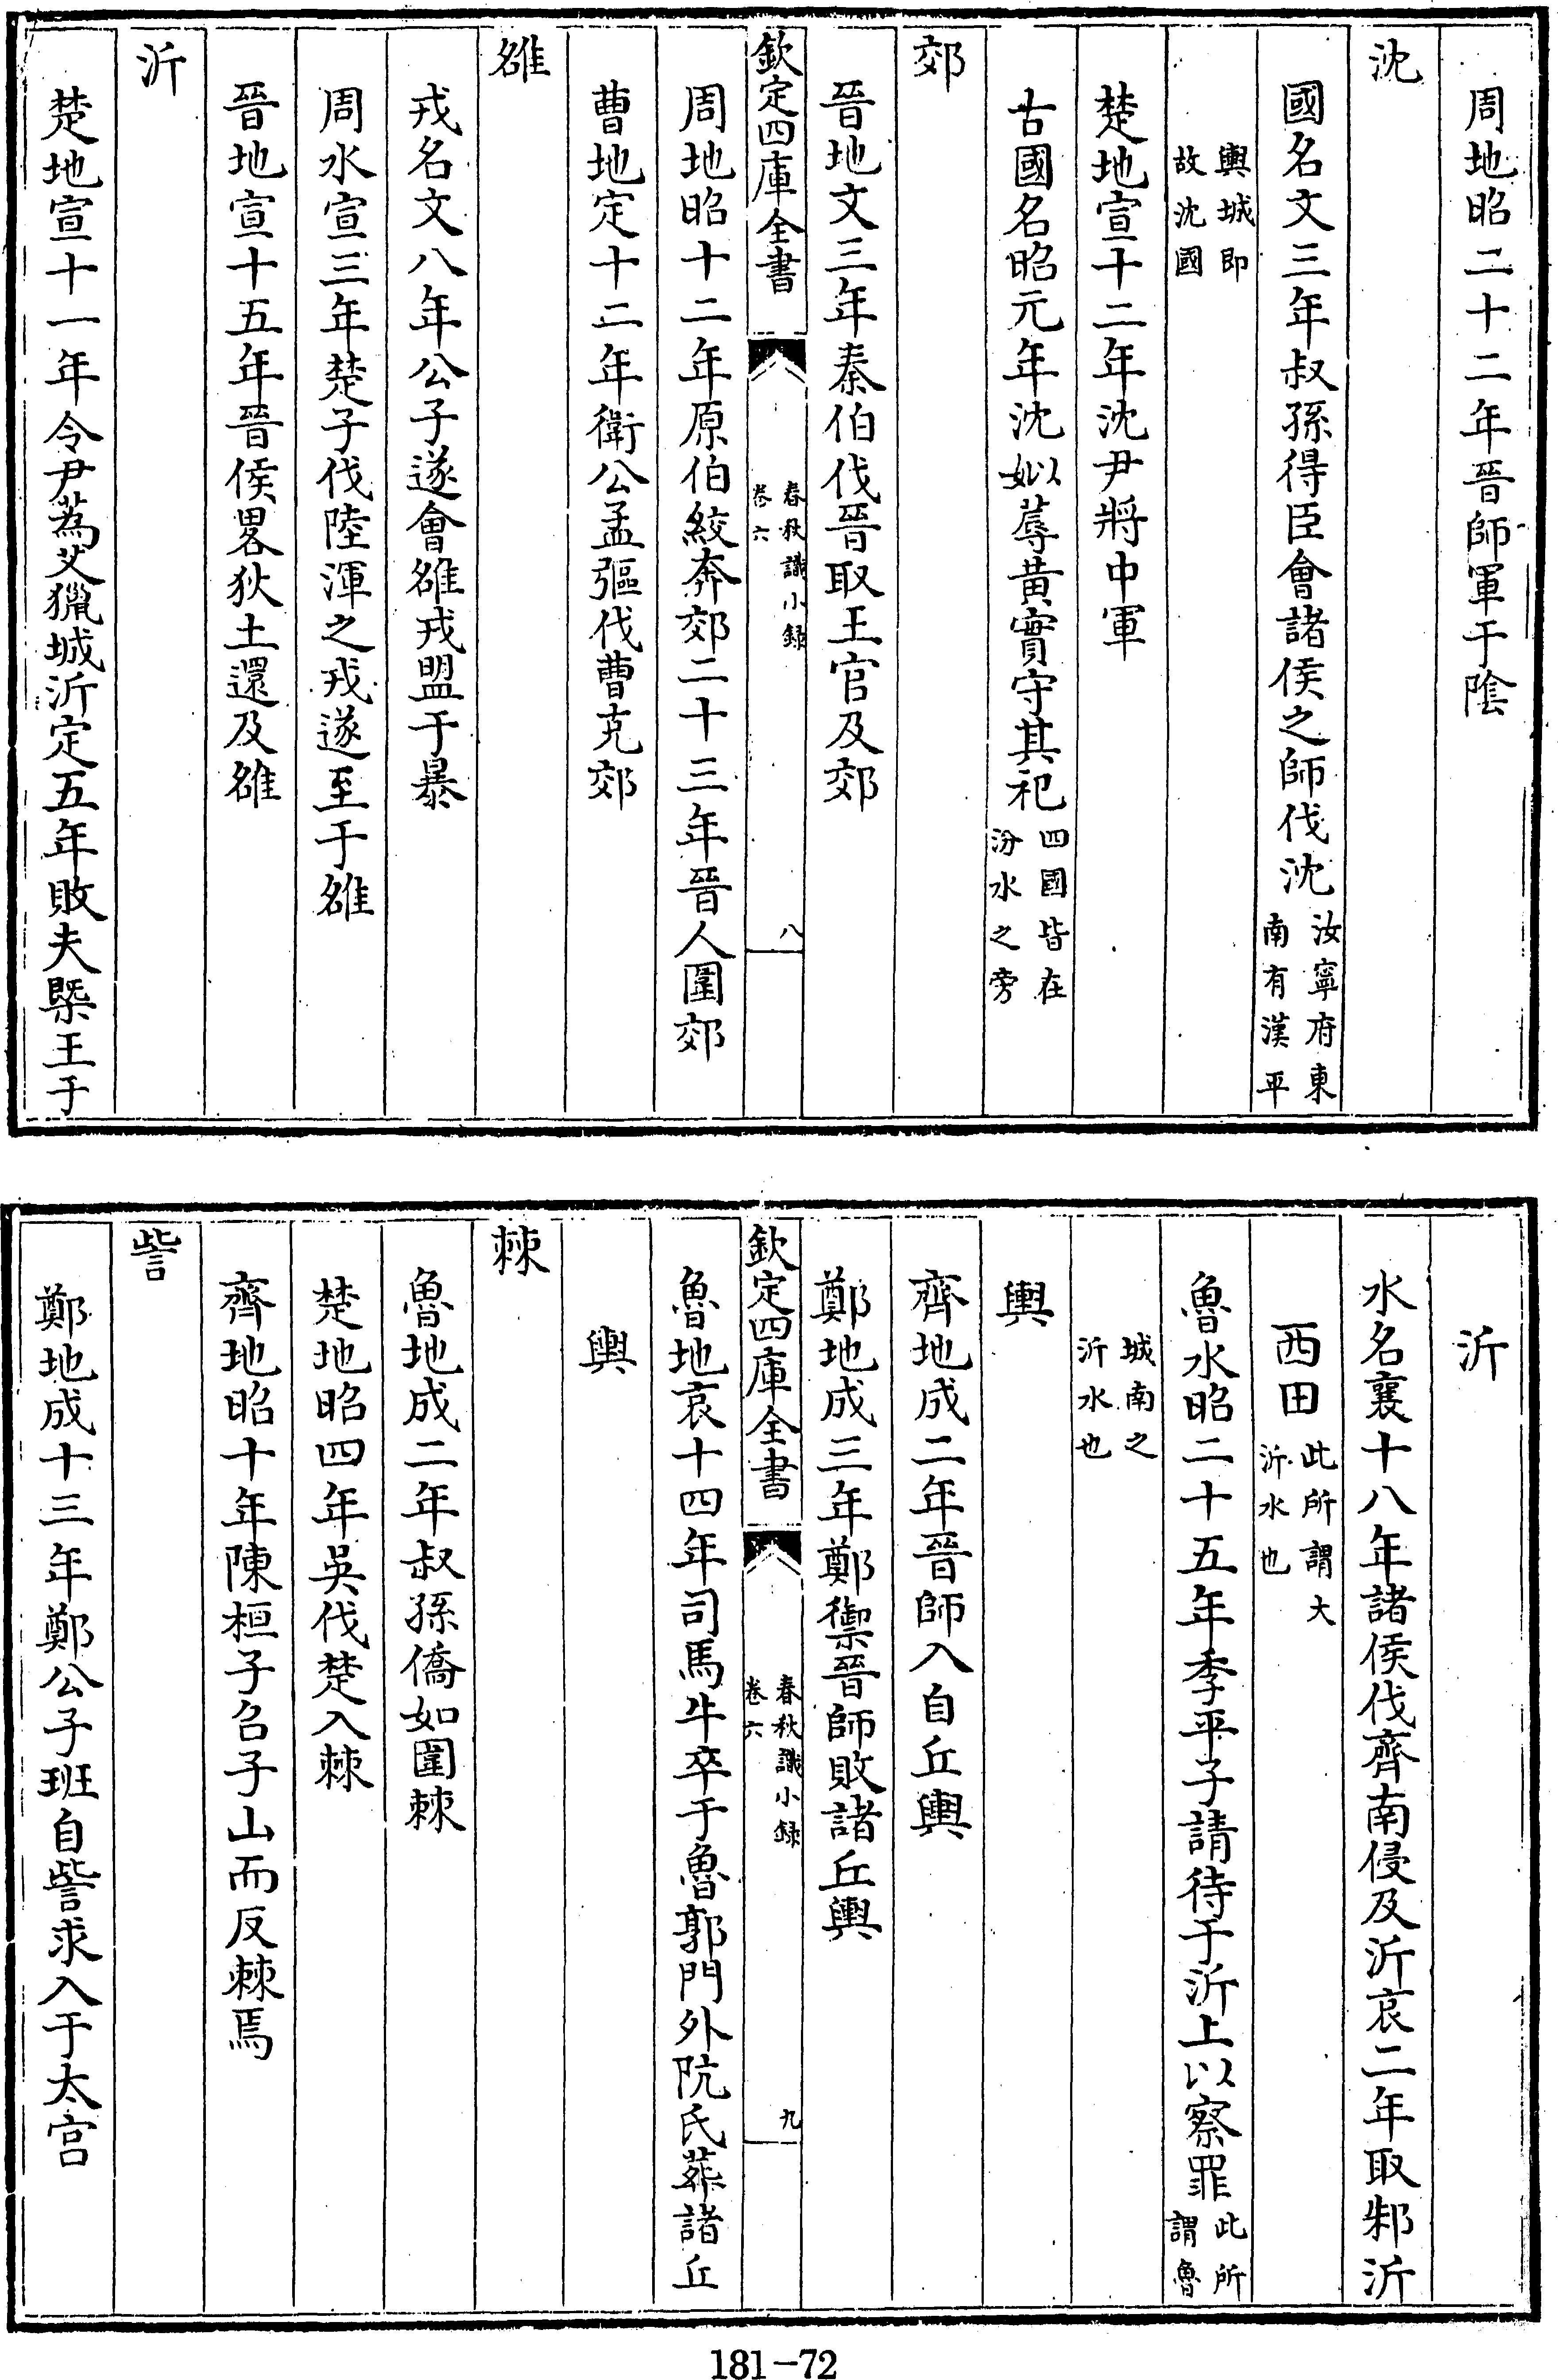 周地昭二十二年晉師軍于隂
沈
國名文三年叔孫得臣會諸侯之師伐沈汝寧府東南有漢平
輿城即故沈國
楚地宣十二年沈尹將中軍
古國名昭元年沈姒蓐黄實守其祀四國皆在汾水之旁
郊
晉地文三年秦伯伐晉取王官及郊
欽定四庫全書
春秋識小録
卷六
八
周地昭十二年原伯絞奔郊二十三年晉人圍郊
曹地定十二年衛公孟彄伐曹克郊
雒
戎名文八年公子遂會雒戎盟于暴
周水宣三年楚子伐陸渾之戎遂至于雒
晉地宣十五年晉侯畧狄土還及雒
沂
楚地宣十一年令尹蒍艾獵城沂定五年敗夫槩王于
沂
水名襄十八年諸侯伐齊南侵及沂哀二年取邾沂
西田此所謂大沂水也
魯水昭二十五年季平子請待于沂上以察罪此所謂魯
城南之沂水也
輿
齊地成二年晉師入自丘輿
鄭地成三年鄭禦晉師敗諸丘輿
欽定四庫全書
春秋識小録
卷六
九
魯地哀十四年司馬牛卒于魯郭門外阬氏葬諸丘
輿
棘
魯地成二年叔孫僑如圍棘
楚地昭四年吳伐楚入棘
齊地昭十年陳桓子召子山而反棘焉
訾
鄭地成十三年鄭公子班自訾求入于太宫
181-72